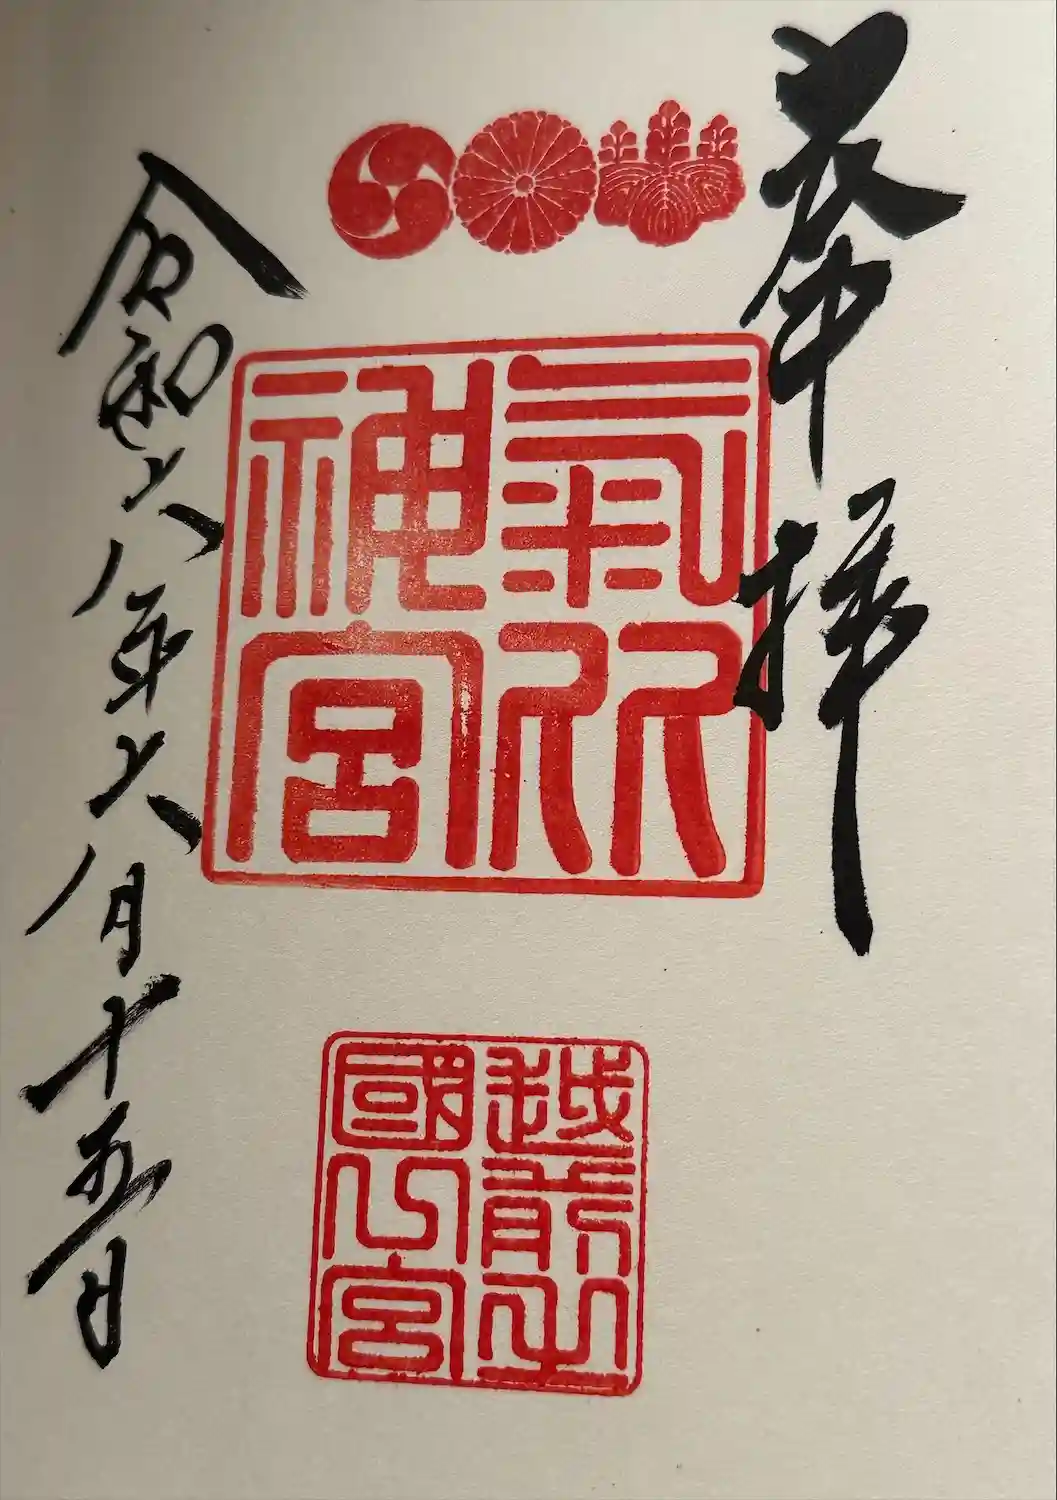 奉拝
氣比
神宮
越前之
國宮
令和六年六月十五日